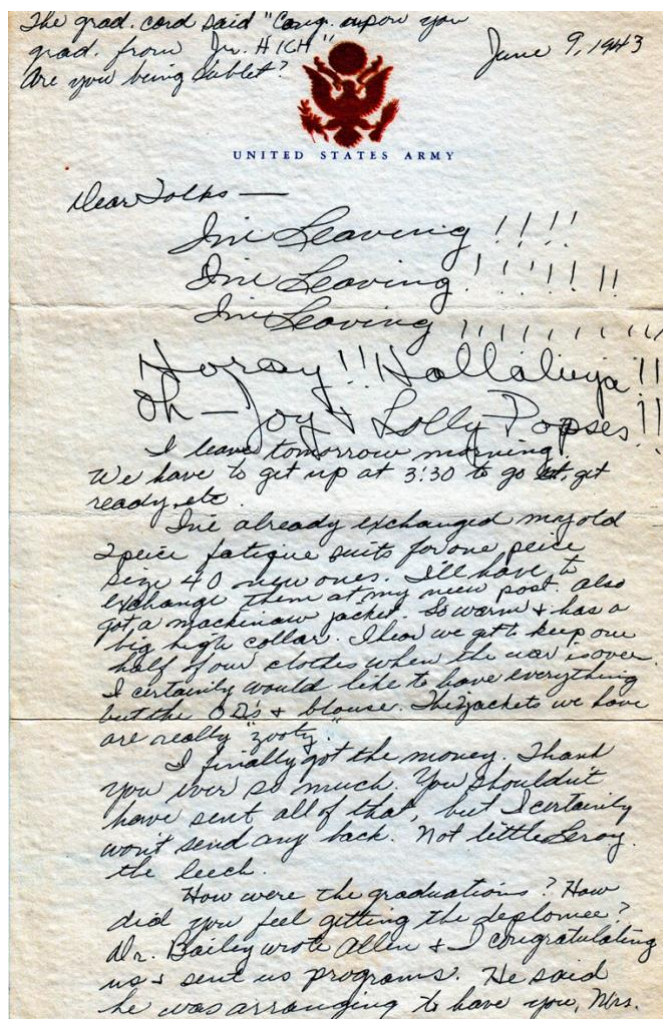 The grad. card said "Cong. upon you
grad. from Jr. HIGH"
Are you being subtle?
June 9, 1943
UNITED STATES ARMY
Dear Folks —
I'm Leaving !!!!
I'm Leaving !!!!!!
I'm Leaving !!!!!!!!!
Horay!! Hallaluija!!
Oh — Joy & Lolly Popses!!
I leave tomorrow morning.
We have to get up at 3:30 to go eat, get
ready, etc.
I've already exchanged my old
2 peice fatigue suits for one peice
size 40 new ones. I'll have to
exchange them at my new post. Also
got a mackinaw jacket. So warm & has a
big high collar. I hear we get to keep one
half of our clothes when the war is over.
I certainly would like to have everything
but the OD's & blouse. The jackets we have
are really "zooty."
I finally got the money. Thank
you ever so much. You shouldn't
have sent all of that, but I certainly
won't send any back. Not little Leroy
the leech.
How were the graduations? How
did you feel getting the deplomee?
Dr. Bailey wrote Allen & I congratulating
us & sent us programs. He said
he was arranging to have you, Mrs.